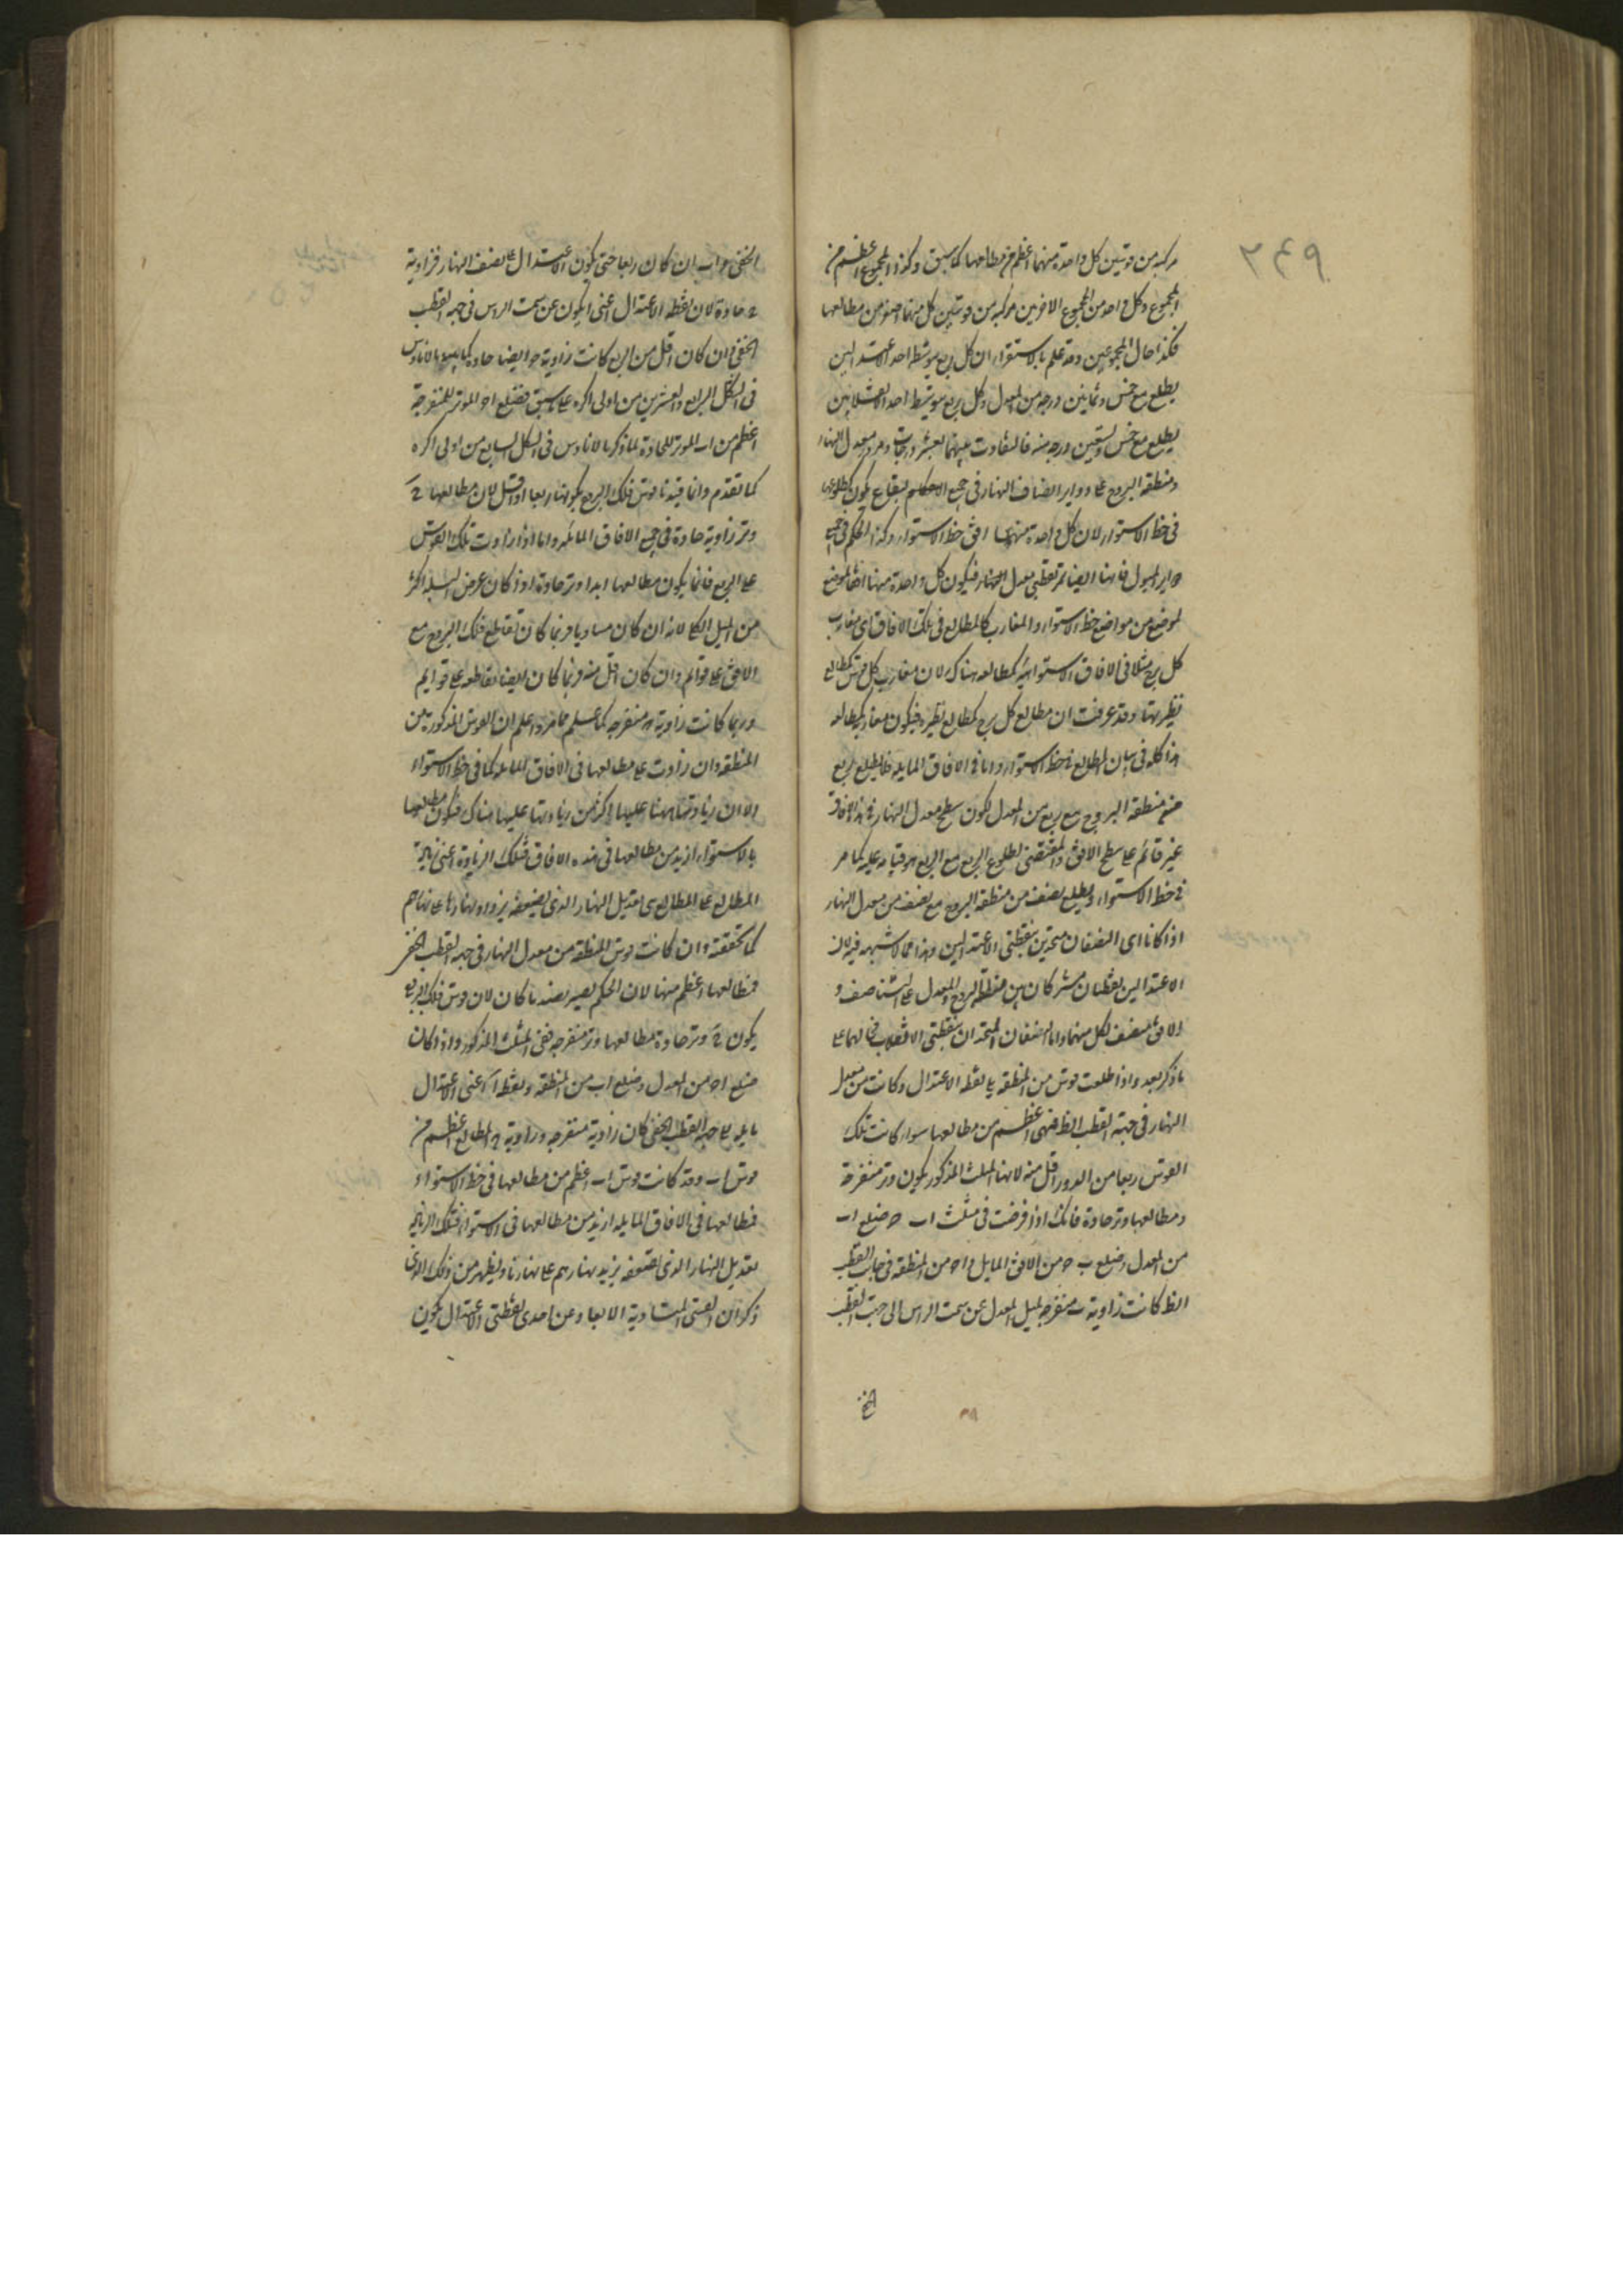 ٣٤٩
مركبة من قوسين كل واحدة منهما اعظم من مطالعها كما سبق وكذا المجموع اعظم من
المجموع وكل واحد من المجموع الاخرين مركبة من قوسين كل منهما اصغر من مطالعها
فكذا حال المجموعين وقد علم بالاستقراء ان كل ربع يتوسطه احد الاعتدالين
يطلع مع خمس وثمانين درجة من المعدل وكل ربع يتوسطه احد الانقلابين
يطلع مع خمس وتسعين درجة منه فالتفاوت بينهما بعشر درجات ومرور معدل النهار
ومنطقة البروج على دواير انصاف النهار في جميع الاحكام لبقاع يكون كطلوعها
في خط الاستواء لان كل واحدة منها افق خط الاستواء وكذا الحكم في جميع
دواير الميول فانها ايضا تمر بقطبي معدل النهار فيكون كل واحدة منها افقا لموضع
لموضع من مواضع خط الاستواء والمغارب كالمطالع في تلك الافاق اي مغارب
كل برج مثلا في الافاق الاستوائية كمطالعه هناك لان مغارب كل قوس كمطالع
نظيرتها وقد عرفت ان مطالع كل برج كمطالع نظيره فيكون مغاربه كمطالعه
هذا كله في بيان المطالع في خط الاستواء واما في الافاق المايله فلا يطلع ربع
من منطقة البروج مع ربع من المعدل لكون سطح معدل النهار في هذه الافاق
غير قائم على سطح الافق والمقتضى لطلوع الربع مع الربع هو قيامه عليه كما مر
في خط الاستواء ويطلع نصف من منطقة البروج مع نصف من معدل النهار
اذا كانا اى النصفان متحدين بنقطتي الاعتدالين وهذا مما لا شبهه فيه لان
الاعتدالين نقطتان مشتركان بين منطقة البروج والمعدل على التناصف و
الافق منصف لكل منهما واما النصفان المتحدان بنقطتي الانقلاب فحالهما على
ما ذكر بعد واذا طلعت قوس من المنطقه يلى نقطه الاعتدال وكانت من معدل
النهار في جهة القطب الظ فهى اعظم من مطالعها سواء كانت تلك
القوس ربعا من الدور او اقل منه لانها في المثلث المذكور يكون وتر منفرجة
ومطالعها وتر حادة فانك اذا فرضت في مثلث اب ح ضلع اب
من المعدل وضلع ب ح من الافق المايل و اح من المنطقه في جانب القطب
الظ كانت زاوية ب منفرجة لميل المعدل عن سمت الراس الى جهة القطب
الخفى
الخفى واب ان كان ربعا حتى يكون الاعتدال على نصف النهار فزاوية
ح حادة لان نقطه الاعتدال اعنى ا يكون عن سمت الراس في جهة القطب
الخفى وان كان اقل من الربع كانت زاوية ح ايضا حادة كما بينه مالاناوس
في الشكل الرابع والعشرين من اولى اكره على ما سبق فضلع اح الموتر للمنفرجة
اعظم من اب الموتر للحادة لما ذكره مالاناوس في الشكل السابع من اولى اكره
كما تقدم وانما قيدنا قوس فلك البروج بكونها ربعا او اقل لان مطالعها ح
وتر زاوية حادة في جميع الافاق المائله واما اذا زادت تلك القوس
على الربع فانما يكون مطالعها ابدا وتر حادة اذا كان عرض البلد اكثر
من الميل الكلى لانه ان كان مساويا فربما كان تقاطع فلك البروج مع
الافق على قوائم وان كان اقل منه فربما كان ايضا تقاطعه على قوايم
وربما كانت زاوية ح منفرجه كما علم مما مر واعلم ان القوس المذكورة من
المنطقه وان زادت على مطالعها في الافاق المايله كما في خط الاستواء
الا ان زيادتها ههنا عليها اكثر من زيادتها عليها هناك فيكون مطالعها
بالاستواء ازيد من مطالعها في هذه الافاق فتلك الزيادة اعنى زيادة
المطالع على المطالع هى تعديل النهار الذى بضعفه يزداد نهارنا على نهارهم
كما تحققته وان كانت قوس المنطقه من معدل النهار في جهة القطب الخفى
فمطالعها اعظم منها لان الحكم يصير بضد ما كان لان قوس فلك البروج
يكون ح وتر حادة لمطالعها وتر منفرجه ففى المثلث المذكور واذا كان
ضلع اح من المعدل وضلع اب من المنطقه ونقطة ا اعنى الاعتدال
مايله على جهة القطب الخفى كان زاوية منفرجه وزاوية ح المطالع اعظم من
قوس اب وقد كانت قوس اب اعظم من مطالعها في خط الاستواء
فمطالعها في الافاق المايله ازيد من مطالعها في الاستواء فتلك الزيادة
تعديل النهار الذى بضعفه يزيد نهارهم على نهارنا ويظهر من ذلك الذى
ذكر ان القسى المتساوية الابعاد عن احدى نقطتى الاعتدال يكون